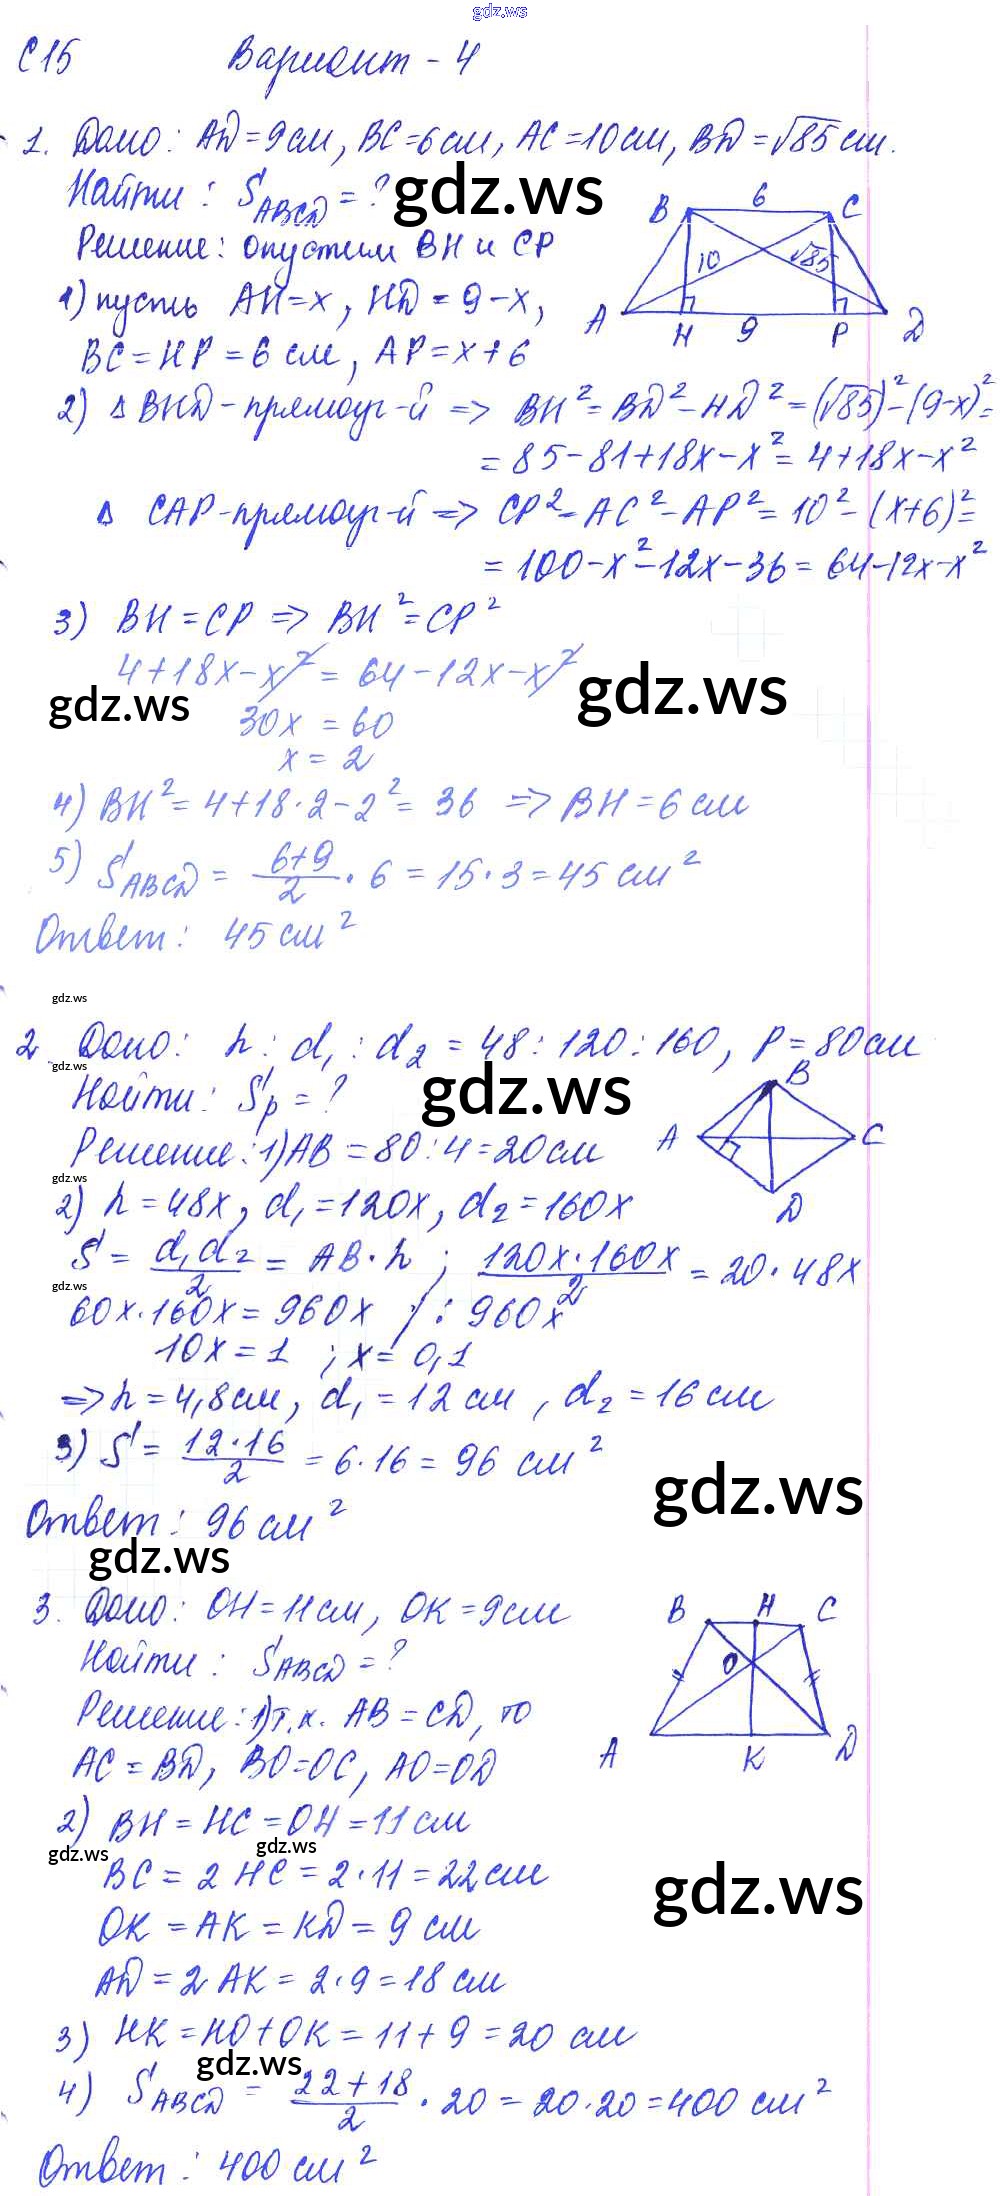 gdz.ws
С15 Вариант - 4
1. Дано: AD = 9 см, BC = 6 см, AC = 10 см, BD = √85 см.
Найти: S ABCD = ?
gdz.ws
Решение: опустим BH и CP
1) пусть AH = x, HD = 9 - x,
BC = HP = 6 см, AP = x + 6
B 6 C
10 √85
A H 9 P D
2) Δ BHD - прямоуг-й => BH² = BD² - HD² = (√85)² - (9-x)² =
= 85 - 81 + 18x - x² = 4 + 18x - x²
Δ CAP - прямоуг-й => CP² = AC² - AP² = 10² - (x+6)² =
= 100 - x² - 12x - 36 = 64 - 12x - x²
3) BH = CP => BH² = CP²
4 + 18x - x² = 64 - 12x - x²
gdz.ws gdz.ws
30x = 60
x = 2
4) BH² = 4 + 18 · 2 - 2² = 36 => BH = 6 см
5) S ABCD = 6+9/2 · 6 = 15 · 3 = 45 см²
Ответ: 45 см²
gdz.ws
2 Дано: h : d₁ : d₂ = 48 : 120 : 160, P = 80 см
gdz.ws
gdz.ws
Найти: Sp = ?
B
A C
D
Решение: 1) AB = 80 : 4 = 20 см
gdz.ws
2) h = 48x, d₁ = 120x, d₂ = 160x
S = d₁d₂/2 = AB · h ; 120x · 160x/2 = 20 · 48x
gdz.ws
60x · 160x = 960x / : 960x
10x = 1 ; x = 0,1
=> h = 4,8 см, d₁ = 12 см, d₂ = 16 см
3) S = 12 · 16/2 = 6 · 16 = 96 см²
gdz.ws
Ответ: 96 см²
gdz.ws
3. Дано: OH = 11 см, OK = 9 см
Найти: S ABCD = ?
B H C
O
A K D
Решение: 1) т.к. AB = CD, то
AC = BD, BO = OC, AO = OD
2) BH = HC = OH = 11 см
gdz.ws gdz.ws
BC = 2 HC = 2 · 11 = 22 см
gdz.ws
OK = AK = KD = 9 см
AD = 2 AK = 2 · 9 = 18 см
3) HK = HO + OK = 11 + 9 = 20 см
gdz.ws
4) S ABCD = 22+18/2 · 20 = 20 · 20 = 400 см²
Ответ: 400 см²